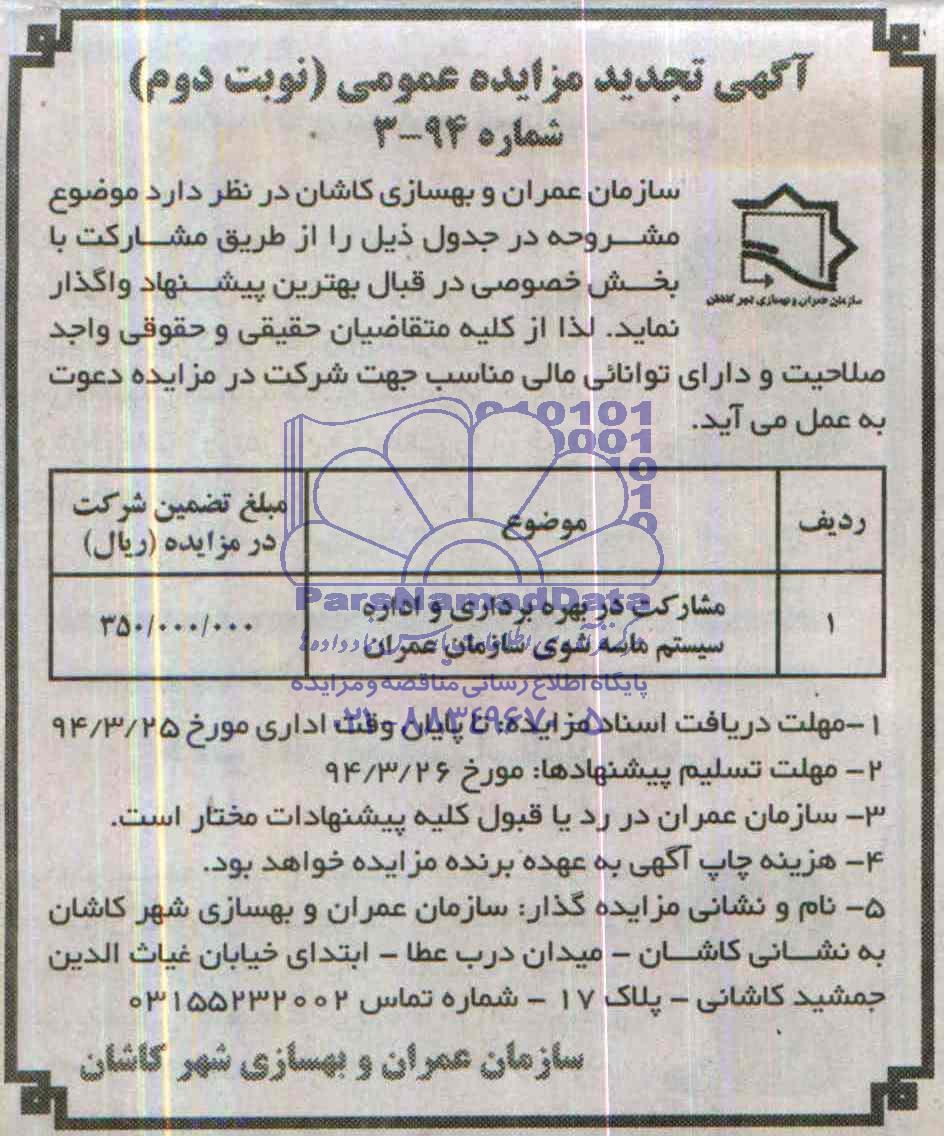 آگهی تجدید مزایده عمومی (نوبت دوم)
شماره ۹۴-۳
سازمان عمران و بهسازی کاشان در نظر دارد موضوع
مشروحه در جدول ذیل را از طریق مشارکت با
بخش خصوصی در قبال بهترین پیشنهاد واگذار
نماید. لذا از کلیه متقاضیان حقیقی و حقوقی واجد
سازمان عمران و بهسازی شهر کاشان
صلاحیت و دارای توانائی مالی مناسب جهت شرکت در مزایده دعوت
به عمل می آید.
ردیف موضوع مبلغ تضمین شرکت در مزایده (ریال)
۱ مشارکت در بهره برداری و اداره سیستم ماسه شوی سازمان عمران ۳۵۰/۰۰۰/۰۰۰
ParsNamadData
پایگاه اطلاع رسانی مناقصه و مزایده
۰۲۱-۸۸۳۴۹۶۷۰-۵
۱-مهلت دریافت اسناد مزایده: تا پایان وقت اداری مورخ ۹۴/۳/۲۵
۲- مهلت تسلیم پیشنهادها: مورخ ۹۴/۳/۲۶
۳- سازمان عمران در رد یا قبول کلیه پیشنهادات مختار است.
۴- هزینه چاپ آگهی به عهده برنده مزایده خواهد بود.
۵- نام و نشانی مزایده گذار: سازمان عمران و بهسازی شهر کاشان
به نشانی کاشان - میدان درب عطا - ابتدای خیابان غیاث الدین
جمشید کاشانی - پلاک ۱۷ - شماره تماس ۰۳۱۵۵۲۳۲۰۰۲
سازمان عمران و بهسازی شهر کاشان